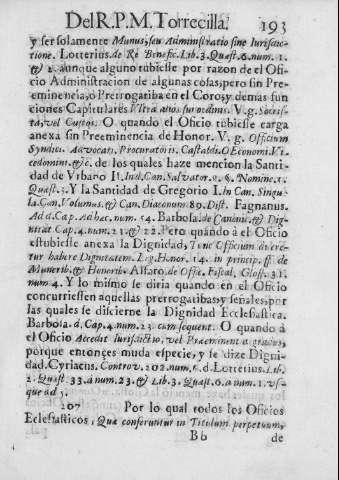 Del R. P. M. Torrecilla. 193
y ser solamente Munus, seu Administratio sine Iurisdic-
tione. Lotterius. de Re Benefic. Lib. 3. Quæst. 6. num. 1.
& 2. aunque alguno tubiesse por razon de el Ofi-
cio Administracion de algunas cosas, pero sin Pre-
eminencia, o Prerrogatiba en el Coro, y demás fun
ciones Capitulares Vltra alios sui ordinis. V. g. Sacris-
ta, vel Custos. O quando el Oficio tubiesse carga
anexa sin Preeminencia de Honor. V. g. Officium
Syndici. Advocati. Procuratoris. Castaldi. Oeconomi. Vi-
cedomini. &c. de los quales haze mencion la Santi-
dad de Vrbano II. Ind. Can. Salvator. 2. §. Nomine. 1.
Quæst. 3. Y la Santidad de Gregorio I. In Can. Singu-
la. Can. Volumus. & Can. Diaconum. 89. Dist. Fagnanus.
Ad d. Cap. Ad hæc. num. 54. Barbosa. de Canonic. & Dig-
nitat Cap. 4. num. 21. & 22. Pero quando à el Oficio
estubiesse anexa la Dignidad, Tunc Officium dicere-
tur habere Dignitatem. Leg. Honor. 14. in princip. ff. de
Munerib. & Honorib. Alfaro. de Offic. Fiscal. Gloss. 31.
num. 4. Y lo mismo se diria quando en el Oficio
concurriessen aquellas prerrogatibas, y señales, por
las quales se discierne la Dignidad Ecclesiastica.
Barbosa. d. Cap. 4. num. 23. cum sequent. O quando à
el Oficio Accedit Iurisdictio, vel Preeminent a gradus,
porque entonçes muda especie, y se dize Digni-
dad. Cyriacus. Controv. 202. num. 6. d. Lotterius. Lib.
2. Quæst. 33. à num. 23. & Lib. 3. Quæst. 6. à num. 1. vs-
que ad 5.
207 Por lo qual todos los Oficios
Eclesiasticos, Quæ conferuntur in Titulum perpetuum,
Bb de